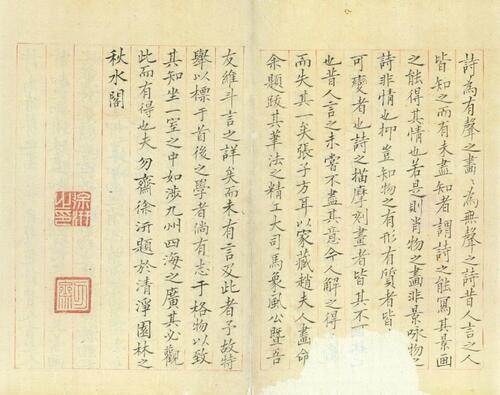 詩為有聲之畫〻為無聲之詩昔人言之人
皆知之而有未盡知者謂詩之能寫其景画
之能得其情也若是則肖物之畫非景咏物之
詩非情也抑豈知物之有形有質者皆
可變者也詩之描摩刻畫者皆其不
也昔人言之未嘗不盡其意今人解之得
而失其一矣張子方耳以家藏趙夫人畫命
余題跋其筆法之精工大司馬象風公暨吾
友維斗言之詳矣而未有言及此者予故特
舉以標于首後之學者倘有志于格物以致
其知坐一室之中如涉九州四海之廣其必觀
此而有得也夫 勿齋徐汧題於清淨園林之
秋水閣
徐汧之印